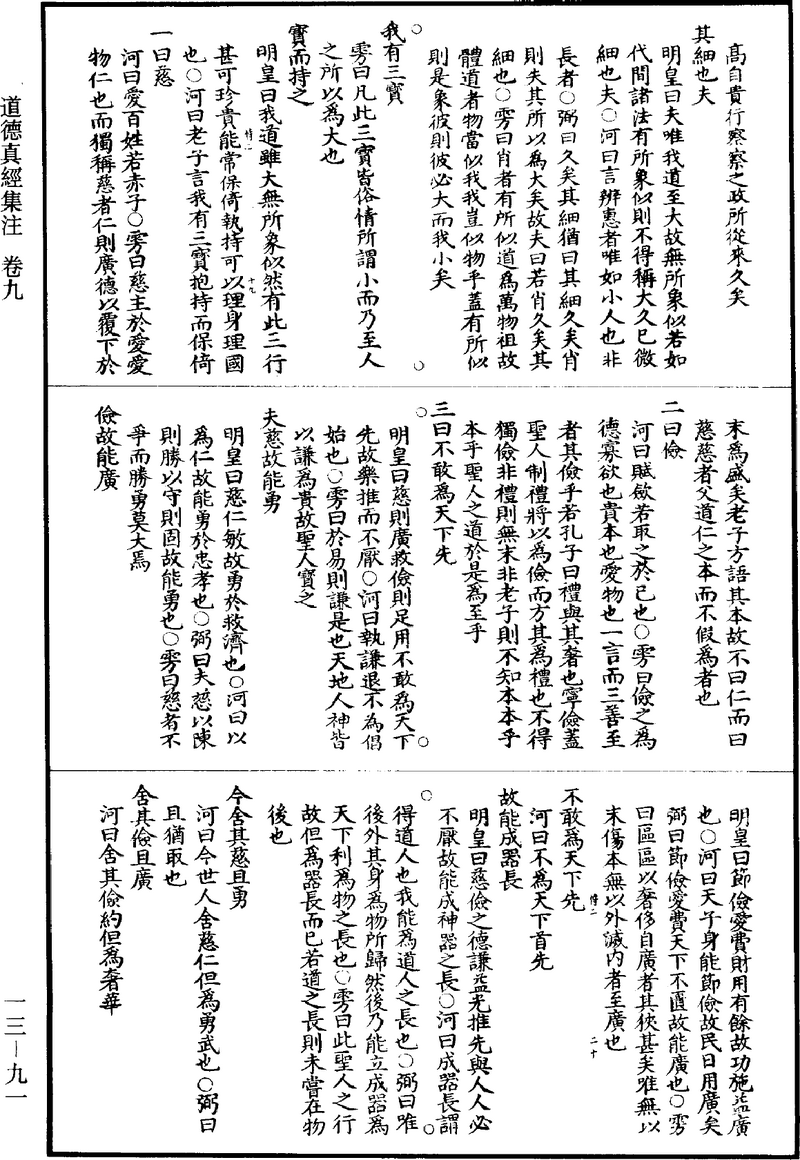 高自貴行察察之政所從來久矣
其細也夫
明皇曰夫唯我道至大故無所象似若如
代間諸法有所象似則不得稱大久已微
細也夫○河曰言辨惠者唯如小人也非
長者○弼曰久矣其細猶曰其細久矣肖
則失其所以為大矣故夫曰若肖久矣其
細也○雱曰肖者有所似道為萬物祖故
體道者物當似我我豈似物乎蓋有所似
則是象彼則彼必大而我小矣
我有三寶
雱曰凡此三寶皆俗情所謂小而乃至人
之所以為大也
寶而持之
明皇曰我道雖大無所象似然有此三行
甚可珍貴能常保倚執持可以理身理國
也○河曰老子言我有三寶抱持而保倚
一曰慈
河曰愛百姓若赤子○雱曰慈主於愛愛
物仁也而獨稱慈者仁則廣德以覆下於
末為盛矣老子方語其本故不曰仁而曰
慈慈者父道仁之本而不假為者也
二曰儉
河曰賦歛若取之於己也○雱曰儉之為
德寡欲也貴本也愛物也一言而三善至
者其儉乎若孔子曰禮與其奢也寧儉蓋
聖人制禮將以為儉而方其為禮也不得
獨儉非禮則無末非老子則不知本本乎
本乎聖人之道於是為至乎
三曰不敢為天下先
明皇曰慈則廣救儉則足用不敢為天下
先故樂推而不厭○河曰執謙退不為倡
始也○雱曰於易則謙是也天地人神皆
以謙為貴故聖人寶之
夫慈故能勇
明皇曰慈仁敏故勇於救濟也○河曰以
為仁故能勇於忠孝也○弼曰夫慈以陳
則勝以守則固故能勇也○雱曰慈者不
爭而勝勇莫大焉
儉故能廣
明皇曰節儉愛費財用有餘故功施益廣
也○河曰天子身能節儉故民日用廣矣
弼曰節儉愛費天下不匱故能廣也○雱
曰區區以奢侈自廣者其狹甚矣唯無以
末傷本無以外滅内者至廣也
不敢為天下先
河曰不為天下首先
故能成器長
明皇曰慈儉之德謙益光推先與人人必
不厭故能成神器之長○河曰成器長謂
得道人也我能為道人之長也○弼曰唯
後外其身為物所歸然後乃能立成器為
天下利為物之長也○雱曰此聖人之行
故但為器長而已若道之長則未嘗在物
後也
今舍其慈且勇
河曰今世人舍慈仁但為勇武也○弼曰
且猶取也
舍其儉且廣
河曰舍其儉約但為奢華
道德真經集注 卷九
一三－九一